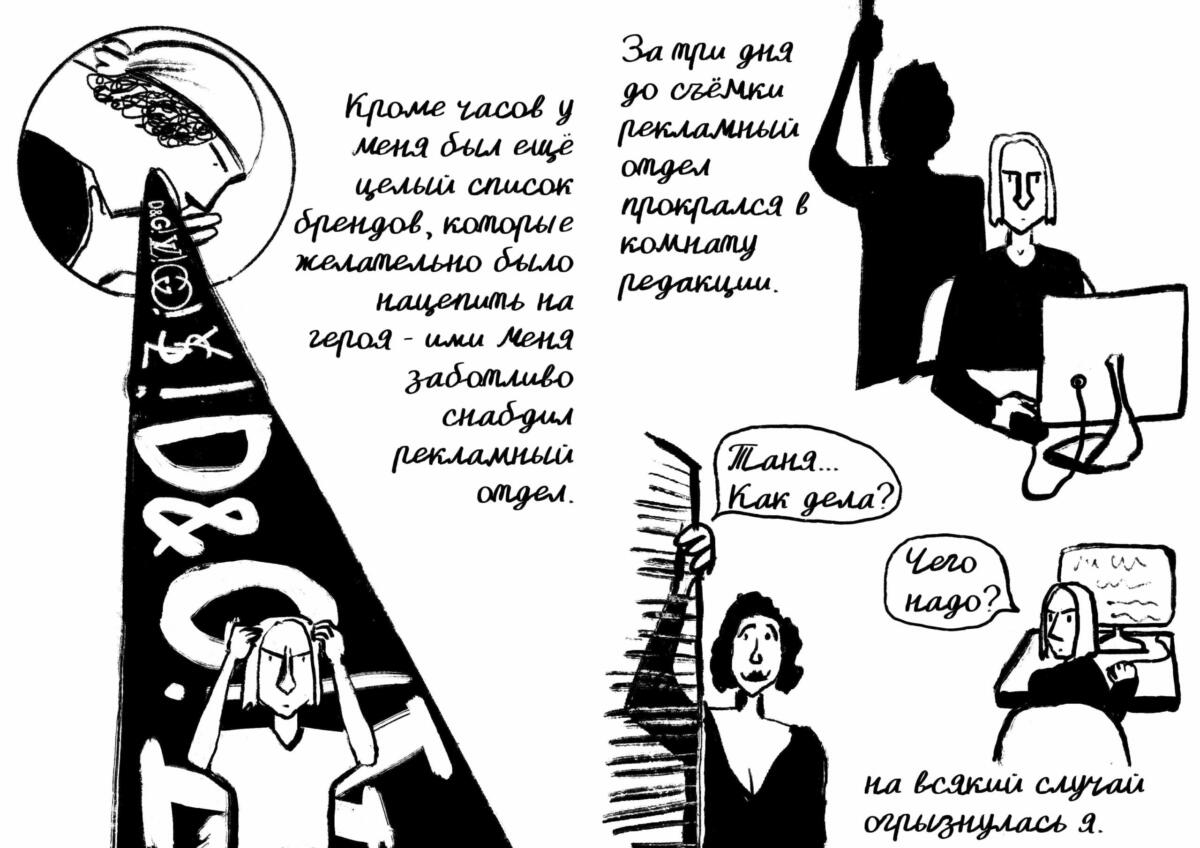 Кроме часов у
меня был ещё
целый список
брендов, которые
желательно было
нацепить на
героя - ими меня
заботливо
снабдил
рекламный
отдел.
D&G
D&G
За три дня
до съёмки
рекламный
отдел
прокрался в
комнату
редакции.
Таня...
Как дела?
Чего
надо?
на всякий случай
огрызнулась я.